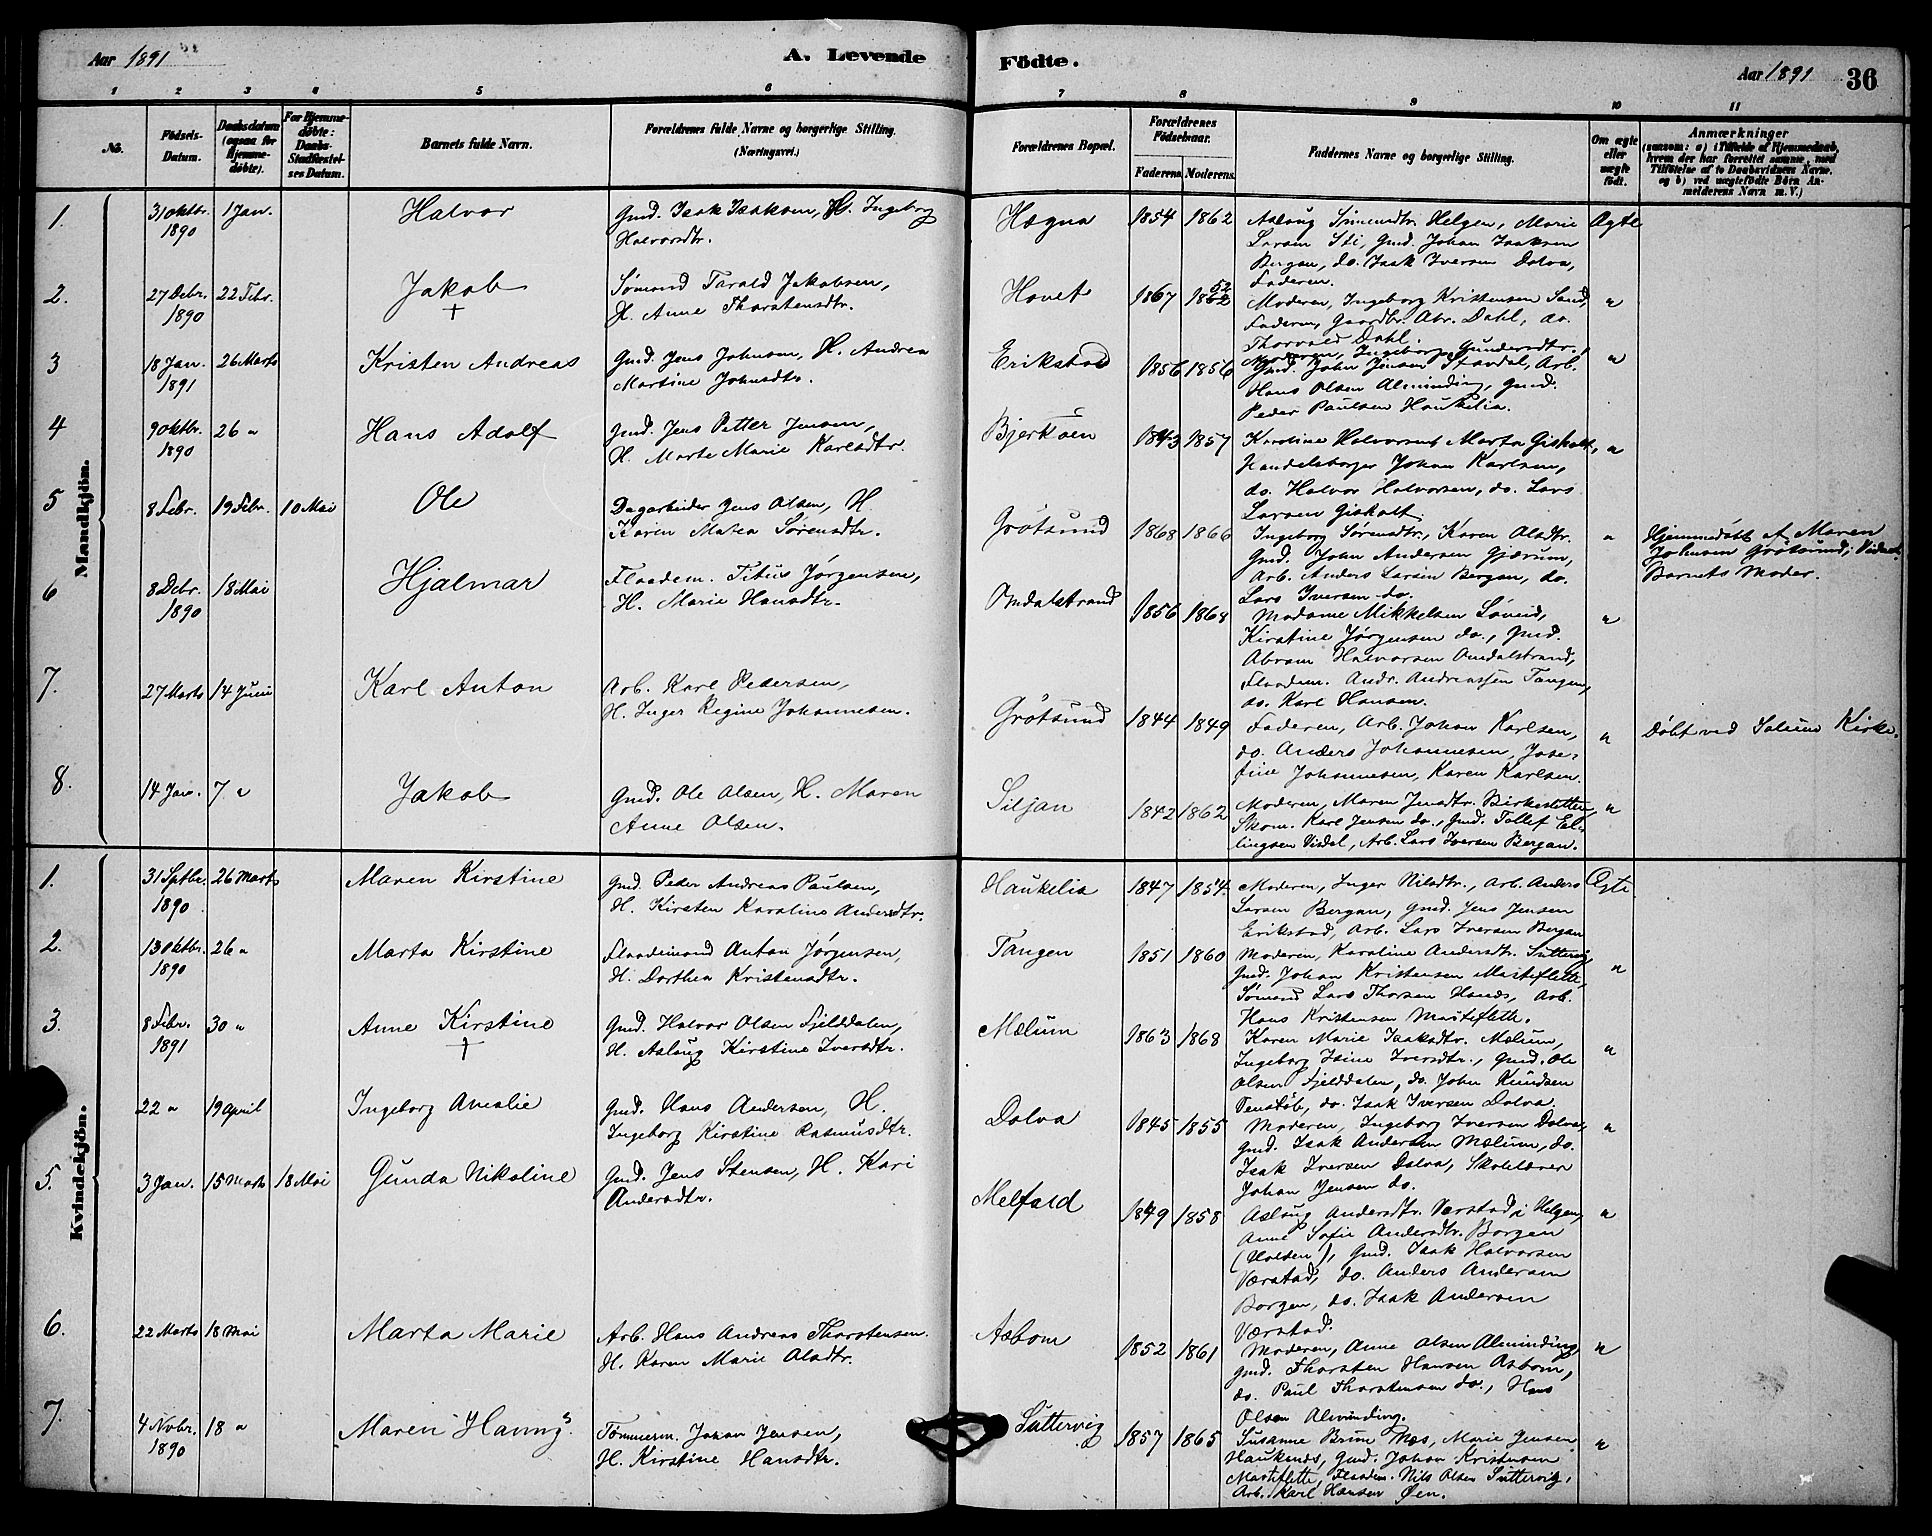 Aar 1891
A. Levende
Födte.
Aar 1891
36
1 2 3 4 5 6 7 8 9 10 11
No.
Födsels-Datum.
Daabsdatum (ogsaa for Hjemme-döbte).
For Hjemme-döbte: Daabs-Stadfæstel-ses Datum.
Barnets fulde Navn.
Forældrenes fulde Navne og borgerlige Stilling. (Næringsvei.)
Forældrenes Bopæl.
Forældrenes Födselsaar.
Faderens. Moderens.
Faddernes Navne og borgerlige Stilling.
Om ægte eller uægte födt.
Anmærkninger
(saasom: a) i Tilfælde af Hjemmedaab, hvem der har forrettet samme, med Tilföielse af to Daabsvidners Navne, og b) ved uægtefödte Börn An-melderens Navn m. V.)
Mandkjön.
1. 31 Oktbr. 1890 1 Jan. Halvor
Gmd. Isak Isaksen, H. Ingeborg
Halvorsdtr.
Hægna 1854 1862
Aslaug Simensdtr. Helgen, Marie
Larsen Sti, Gmd. Johan Isaksen
Bergan, do. Isak Iversen Dolva,
Faderen.
Ægte
2. 27 Debr. 1890 22 Febr. Jakob +
Sømand Tarald Jakobsen,
H. Anne Thorstensdtr.
Hovet 1867 1862 52
Moderen, Ingeborg Kristensen Sand,
Faderen, Gaardbr. Abr. Dahl, do.
Thorvald Dahl.
"
3 18 Jan. 1891 26 Marts Kristen Andreas
Gmd. Jens Johnsen, H. Andrea
Martine Johnsdtr.
Erikstad 1856 1856
Moderen, Ingeborg Gundersdtr.,
Gmd. John Jensen Stavdal, Arb.
Hans Olsen Alminding, Gmd.
Peder Paulsen Haukelia.
"
4 9 Oktbr. 1890 26 " Hans Adolf
Gmd. Jens Petter Jensen,
H. Marte Marie Karlsdtr.
Bjerkøen 1843 1857
Karoline Halvorsen, Marta Gisholt,
Handelsborger Johan Karlsen,
do. Halvor Halvorsen, do. Lars
Larsen Gisholt.
"
5 8 Febr. 19 Febr. 10 Mai Ole
Dagarbeider Jens Olsen, H.
Karen Maren Sørensdtr.
Grøtsund 1868 1866
Ingeborg Sørensdtr., Karen Olsdtr.
Gmd. John Andersen Gjærum,
Arb. Anders Larsen Bergan, do.
Lars Iversen do.
"
Hjemmedøbt af Maren
Johnsen Grøtsund;
Barnets Moder.
6 8 Debr. 1890 18 Mai Hjalmar
Flaadem. Titus Jørgensen,
H. Marie Hansdtr.
Omdalstrand 1856 1868
Madame Mikkelsen Løveid,
Kirstine Jørgensen do., Gmd.
Abram Halvorsen Omdalstrand,
Flaadem. Andr. Andreassen Tangen,
do. Karl Hansen.
"
7. 27 Marts 14 Juni Karl Anton
Arb. Karl Pedersen,
H. Inger Regine Johannesen.
Grøtsund 1844 1849
Faderen, Arb. Johan Karlsen,
do. Anders Johannesen, Jose-
fine Johannesen, Karen Karlsen.
"
Døbt ved Solum Kirke.
8. 14 Jan. 7 " Jakob
Gmd. Ole Olsen, H. Maren
Anne Olsen.
Siljan 1842 1862
Moderen, Maren Jensdtr. Birkesletten,
Skom. Karl Jensen do., Gmd. Tollef El-
lingsen Visdal, Arb. Lars Iversen Bergan.
"
Kvindekjön.
1. 31 Septbr. 1890 26 Marts Maren Kirstine
Gmd. Peder Andreas Paulsen,
H. Kirsten Karoline Andersdtr.
Haukelia 1847 1854
Moderen, Inger Nilsdtr., Arb. Anders
Larsen Bergan, Gmd. Jens Jensen
Erikstad, Arb. Lars Iversen Bergan
Ægte
2. 13 Oktbr. 1890 26 " Marta Kirstine
Flaademand Anton Jørgensen,
H. Dorthea Kristensdtr.
Tangen 1851 1860
Moderen, Karoline Andersdtr. Suttervig,
Gmd. Johan Kristensen Masteflette,
Sømand Lars Thorsen Hanes, Arb.
Hans Kristensen Masteflette.
"
3. 8 Febr. 1891 30 " Anne Kirstine +
Gmd. Halvor Olsen Fjelddalen,
H. Aslaug Kirstine Iversdtr.
Mælum 1863 1868
Karen Marie Isaksdtr. Mælum,
Ingeborg Isine Iversdtr., Gmd. Ole
Olsen Fjelddalen, do. John Knudsen
Venstøb, do. Isak Iversen Dolva.
"
22 " 19 April Ingeborg Amalie
Gmd. Hans Andersen, H.
Ingeborg Kirstine Rasmusdtr.
Dolva 1845 1855
Moderen, Ingeborg Iversen Dolva,
Gmd. Isak Andersen Mælum, do.
Isak Iversen Dolva, Skolelærer
Johan Jensen do.
"
5. 3 Jan. 15 Marts 18 Mai Gunda Nikoline
Gmd. Jens Stensen, H. Kari
Andersdtr.
Melfald 1849 1858
Aslaug Andersdtr. Værstad i Helgen,
Anne Sofie Andersdtr. Borgen
(Holden), Gmd. Isak Halvorsen
Værstad, do. Anders Andersen
Borgen, do. Isak Andersen
Værstad.
"
6. 22 Marts 18 Mai Marta Marie
Arb. Hans Andreas Thorstensen.
H. Karen Marie Olsdtr.
Aasbom 1852 1861
Moderen, Anne Olsen Alminding,
Gmd. Thorsten Hansen Asbom,
do. Paul Thorstensen do., Hans
Olsen Alminding.
"
7. 4 Novbr. 1890 18 " Maren Hanny
Tømmerm. Johan Jensen,
H. Kirstine Hansdtr.
Suttervig 1857 1865
Susanne Brun Mæs, Marie Jensen
Haukenes, Gmd. Johan Kristensen
Masteflette, Flaadem. Nils Olsen Suttervig,
Arb. Karl Hansen Øen.
"